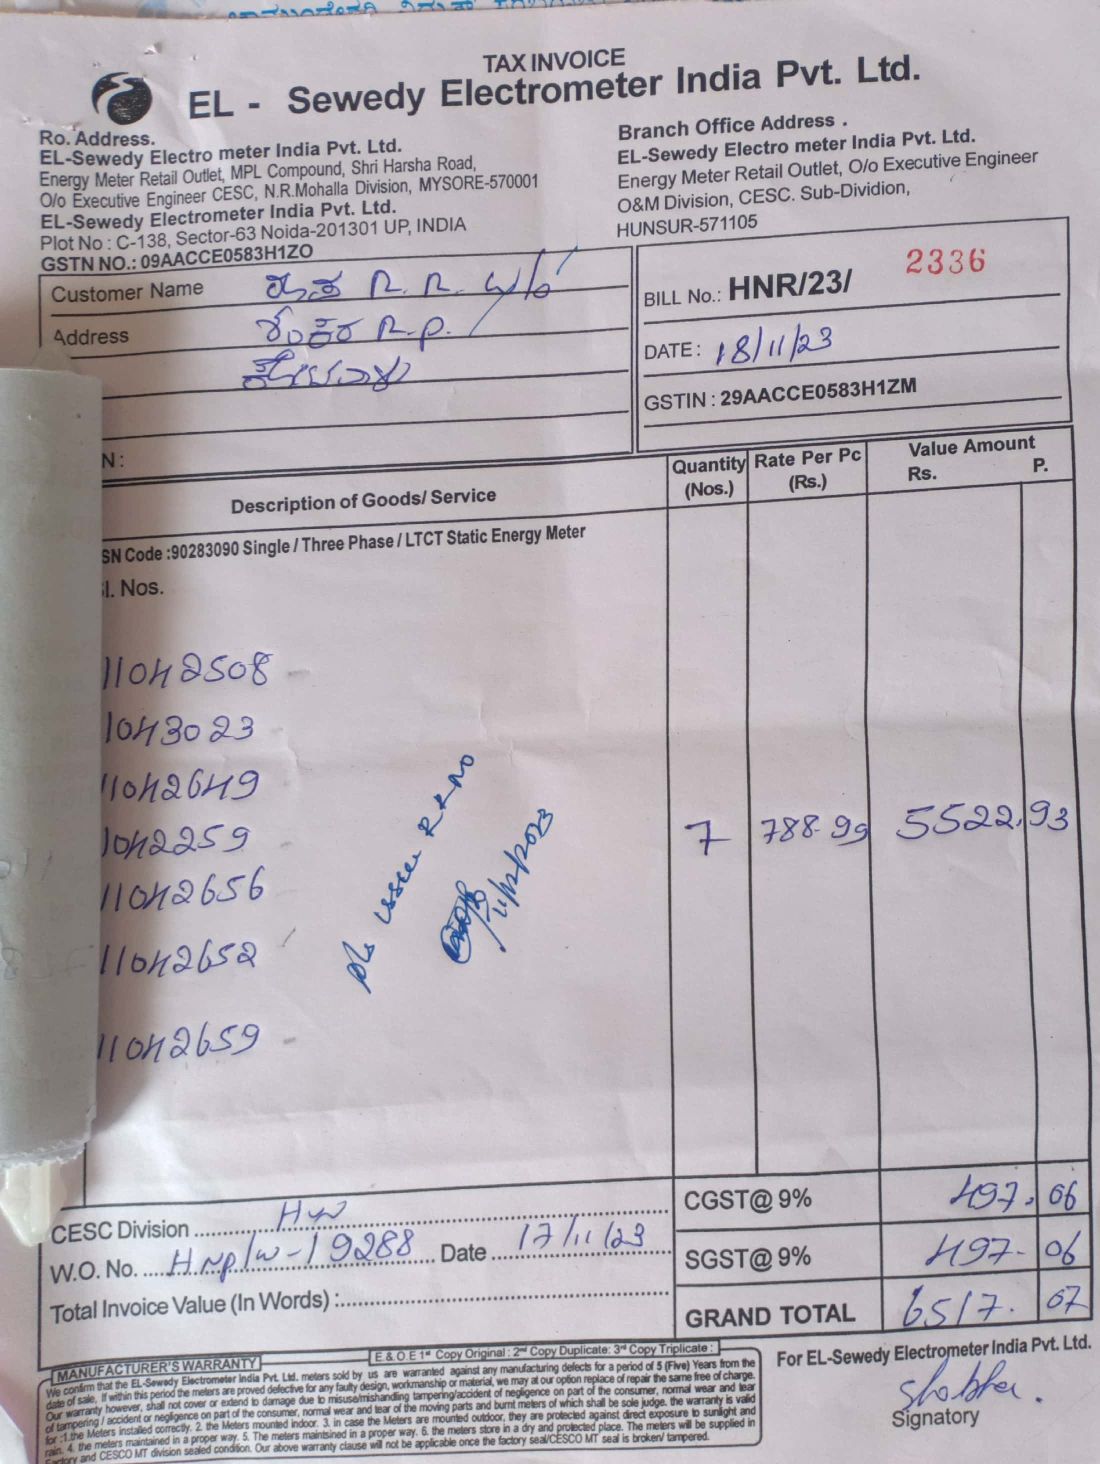 TAX INVOICE
EL - Sewedy Electrometer India Pvt. Ltd.
Ro. Address.
EL-Sewedy Electro meter India Pvt. Ltd.
Energy Meter Retail Outlet, MPL Compound, Shri Harsha Road,
O/o Executive Engineer CESC, N.R.Mohalla Division, MYSORE-570001
EL-Sewedy Electrometer India Pvt. Ltd.
Plot No : C-138, Sector-63 Noida-201301 UP, INDIA
GSTN NO.: 09AACCE0583H1ZO
Branch Office Address .
EL-Sewedy Electro meter India Pvt. Ltd.
Energy Meter Retail Outlet, O/o Executive Engineer
O&M Division, CESC. Sub-Dividion,
HUNSUR-571105
Customer Name R. R. W/o
Address R.P.
BILL No.: HNR/23/ 2336
DATE : 18/11/23
GSTIN : 29AACCE0583H1ZM
N :
Description of Goods/ Service
Quantity (Nos.)
Rate Per Pc (Rs.)
Value Amount Rs. P.
SN Code :90283090 Single / Three Phase / LTCT Static Energy Meter
l. Nos.
11042508
1043023
11042649
1042259
7 788.99 5522.93
11042656
11042652
11042659
RR No
11/12/2023
CESC Division ..... Hn
W.O. No. .... Hnp/w-19288 .... Date .... 17/11/23
Total Invoice Value (In Words) :
CGST@ 9% 497. 06
SGST@ 9% 497- 06
GRAND TOTAL 6517. 07
E & O.E 1st Copy Original : 2nd Copy Duplicate: 3rd Copy Triplicate :
MANUFACTURER'S WARRANTY
We confirm that the EL-Sewedy Electrometer India Pvt. Ltd. meters sold by us are warranted against any manufacturing defects for a period of 5 (Five) Years from the
date of sale, If within this period the meters are proved defective for any faulty design, workmanship or material, we may at our option replace of repair the same free of charge.
Our warranty however, shall not cover or extend to damage due to misuse/mishandling tampering/accident of negligence on part of the consumer, normal wear and tear
of tampering / accident or negligence on part of the consumer, normal wear and tear of the moving parts and burnt meters of which shall be sole judge. the warranty is valid
for :-1.the Meters installed correctly. 2. the Meters mounted indoor. 3. in case the Meters are mounted outdoor, they are protected against direct exposure to sunlight and
rain. 4. the meters maintained in a proper way. 5. The meters maintsined in a proper way. 6. the meters store in a dry and protected place. The meters will be supplied in
Factory and CESCO MT division sealed condition. Our above warranty clause will not be applicable once the factory seal/CESCO MT seal is broken/ tampered.
For EL-Sewedy Electrometer India Pvt. Ltd.
Shobha.
Signatory